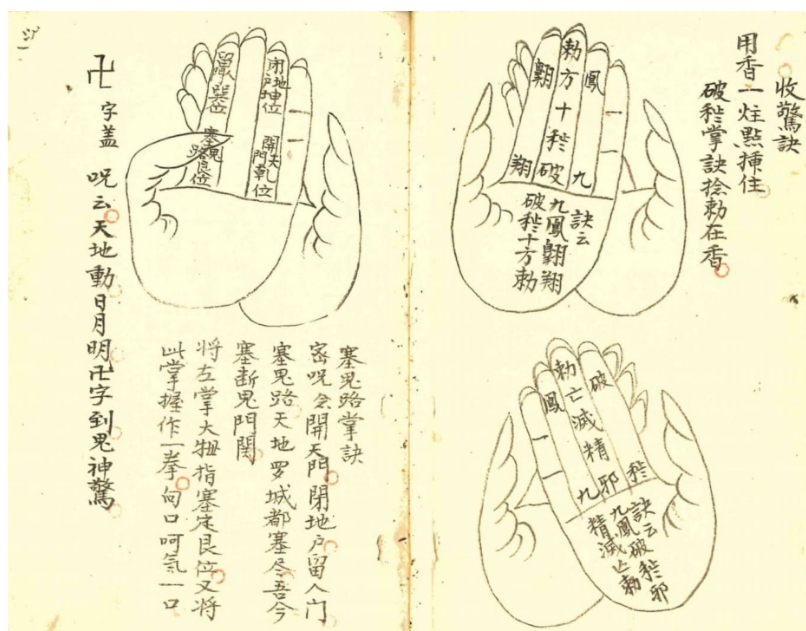 收驚訣
用香一炷點揷住
破秽掌訣捻勅在香
鳳
九
勅方十秽破
翱
翔
訣云
九鳳翱翔
破秽十方勅
破
秽
勅亡滅精邪
鳳
九
訣云
九鳳破秽邪
精滅亡勅
閉地戶坤位
開天門乾位
巽位
塞鬼路艮位
塞鬼路掌訣
密呪念開天門閉地户留人门
塞鬼路天地罗城都塞尽吾今
塞断鬼門関
将左掌大拇指塞定艮位又将
此掌握作一拳向口呵気一口
卍字盖 呪云天地動日月明卍字到鬼神驚